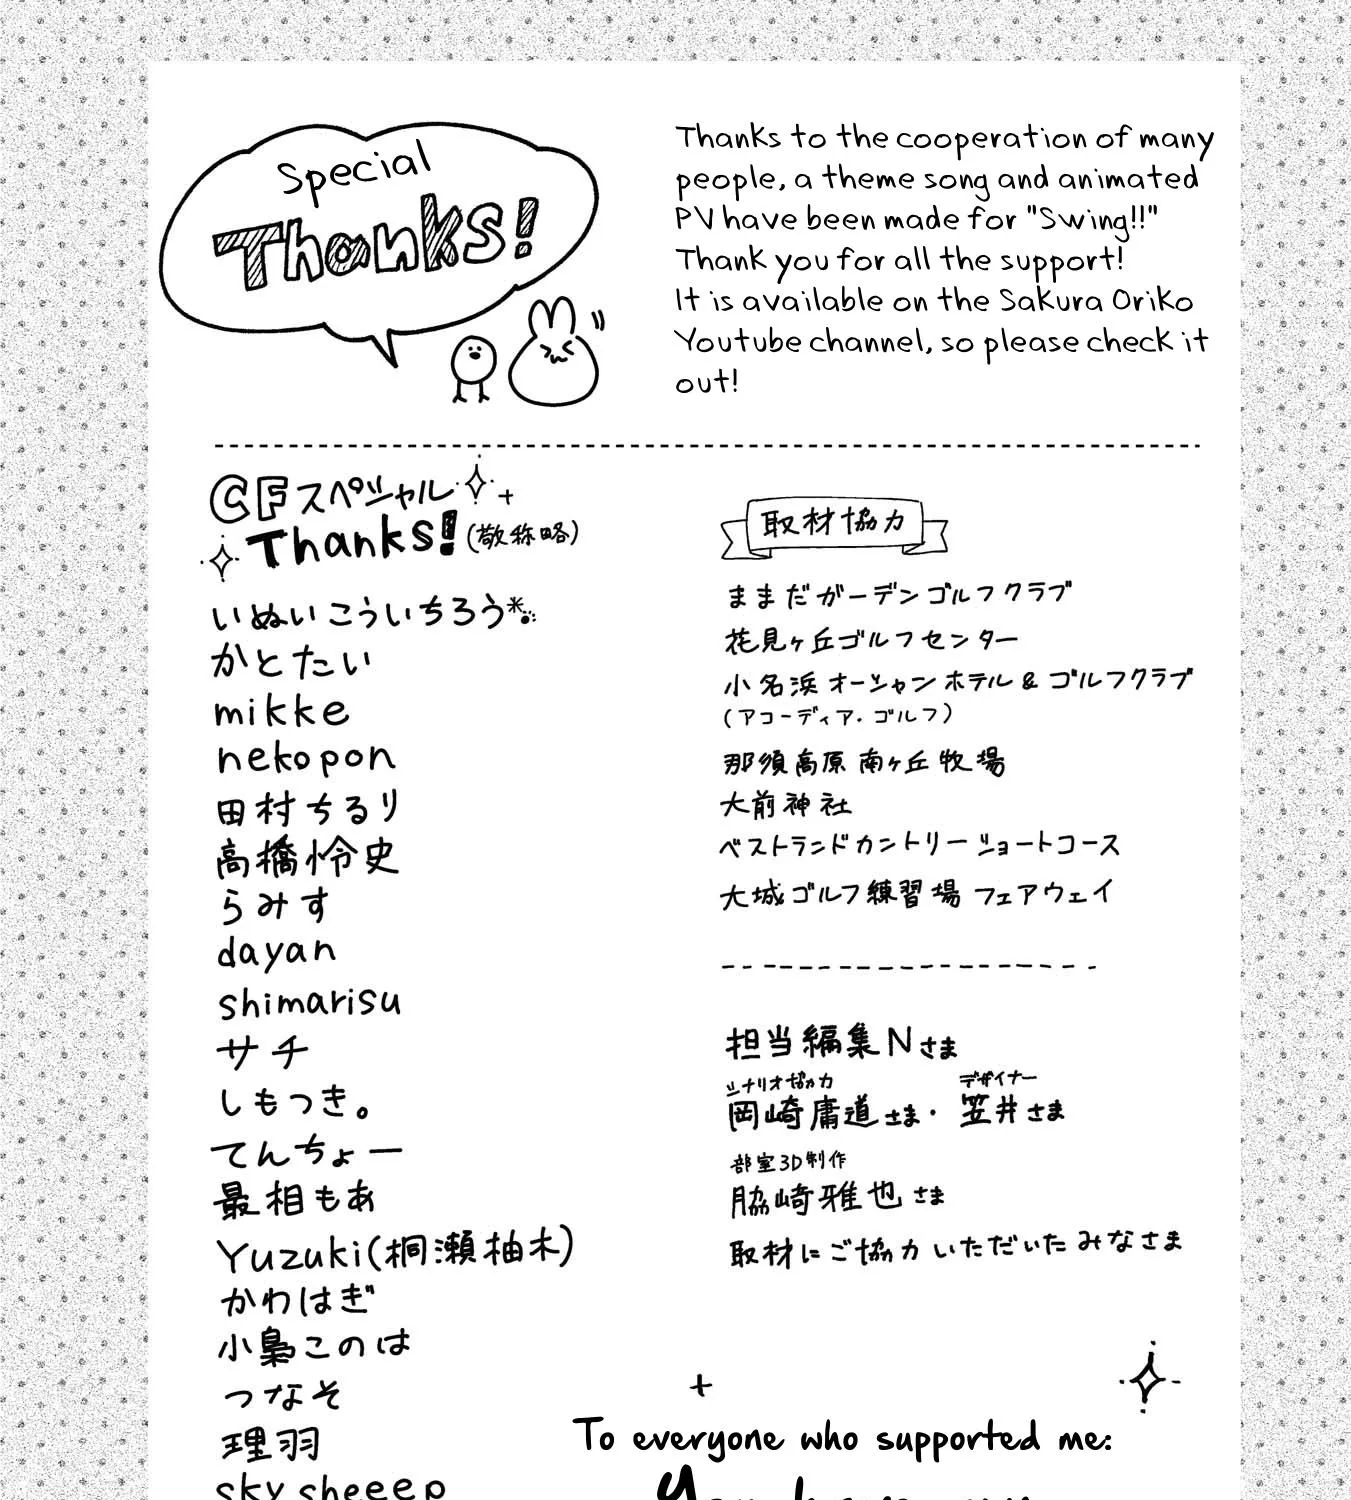 Special
Thanks!
Thanks to the cooperation of many
people, a theme song and animated
PV have been made for "Swing!!"
Thank you for all the support!
It is available on the Sakura Oriko
Youtube channel, so please check it
out!
CFスペシャル
Thanks!(敬称略)
いぬいこういちろう
かとたい
mikke
nekopon
田村ちるり
高橋怜史
らみす
dayan
shimarisu
サチ
しもつき。
てんちょー
最相もあ
Yuzuki(桐瀬柚木)
かわはぎ
小梟このは
つなそ
理羽
sky sheeep
取材協力
ままだガーデンゴルフクラブ
花見ヶ丘ゴルフセンター
小名浜オーシャンホテル&ゴルフクラブ
(アコーディア・ゴルフ)
那須高原南ヶ丘牧場
大前神社
ベストランドカントリーショートコース
大城ゴルフ練習場 フェアウェイ
担当編集Nさま
シナリオ協力 デザイナー
岡崎庸道さま・笠井さま
部室3D制作
脇崎雅也さま
取材にご協力いただいたみなさま
To everyone who supported me: